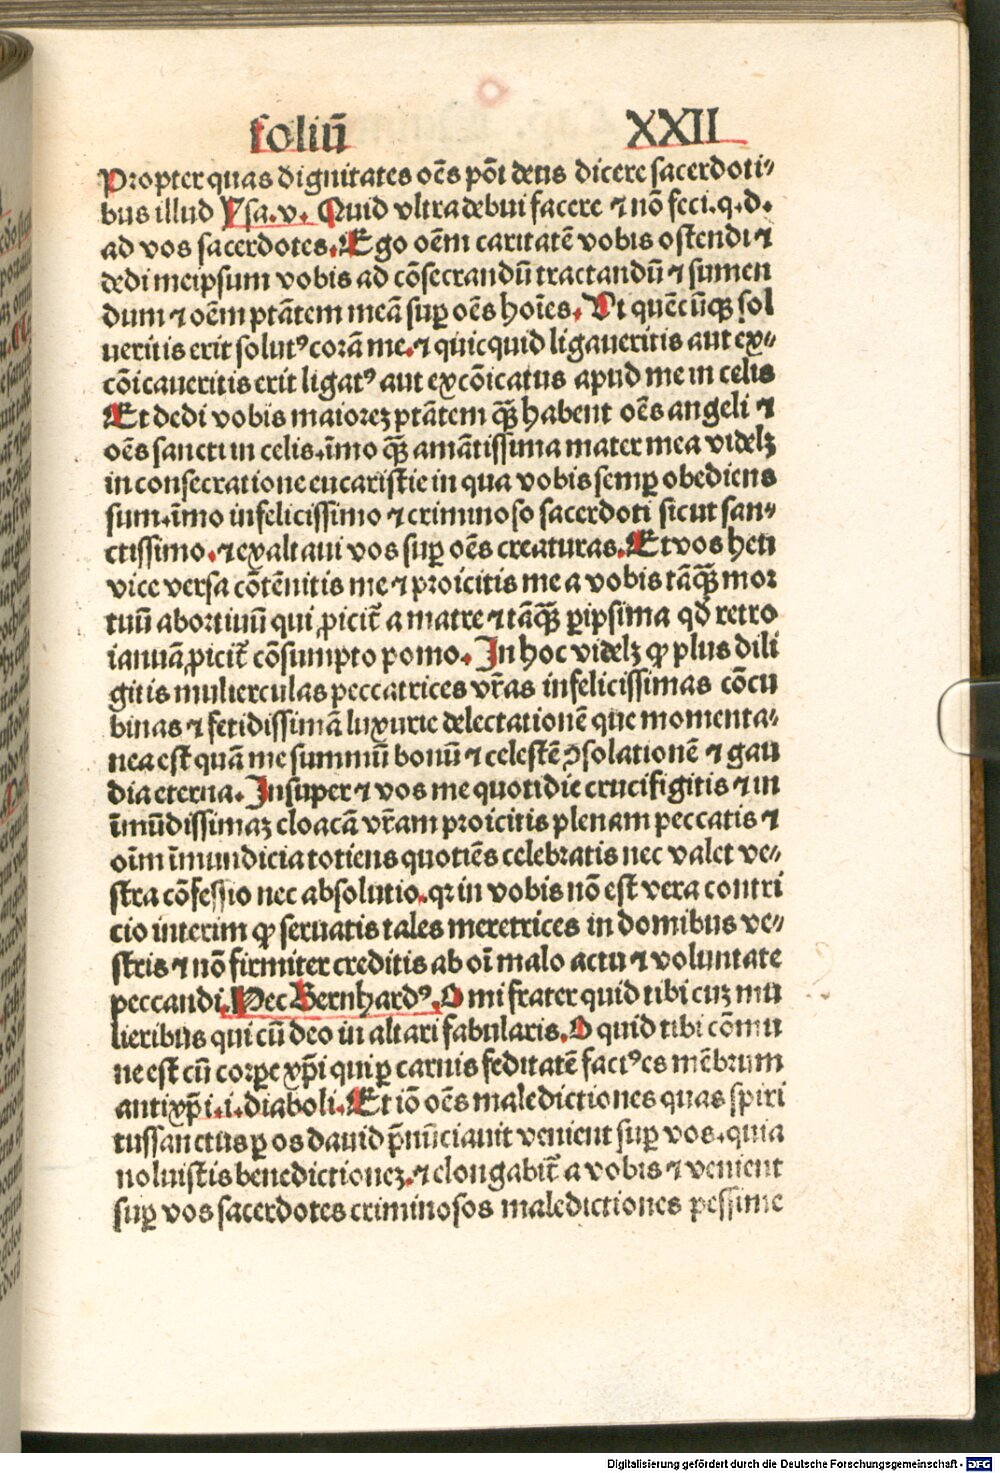 foliū XXII
Propter quas dignitates oēs pōt deus dicere sacerdoti⸗
bus illud Ysa.v. Quid vltra debui facere ⁊ nō feci.q.d.
ad vos sacerdotes. Ego oēm caritatē vobis ostendi ⁊
dedi meipsum vobis ad cōsecrandū tractandū ⁊ sumen
dum ⁊ oēm ptātem meā suꝑ oēs hoīes. Vt quēcūqꝫ sol
ueritis erit solutꝰ corā me. ⁊ quicquid ligaueritis aut ex⸗
cōicaueritis erit ligatꝰ aut excōicatus apud me in celis
Et dedi vobis maiorez ptātem qꝫ̄ habent oēs angeli ⁊
oēs sancti in celis. īmo qꝫ̄ amātissima mater mea videlꝫ
in consecratione eucaristie in qua vobis semꝑ obediens
sum. īmo infelicissimo ⁊ criminoso sacerdoti sicut san⸗
ctissimo. ⁊ exaltaui vos suꝑ oēs creaturas. Et vos heu
vice versa cōtēnitis me ⁊ proicitis me a vobis tāqꝫ̄ mor
tuū abortiuū qui ꝓicit̄ a matre ⁊ tāqꝫ̄ ꝑipsima qd̄ retro
ianuā ꝓicit̄ cōsumpto pomo. In hoc videlꝫ ꝙ plus dili
gitis mulierculas peccatrices vr̄as infelicissimas cōcu
binas ⁊ fetidissimā luxurie delectationē que momenta⸗
nea est quā me summū bonū ⁊ celestē ꝯsolationē ⁊ gau
dia eterna. Insuper ⁊ vos me quotidie crucifigitis ⁊ in
īmūdissimaz cloacā vr̄am proicitis plenam peccatis ⁊
oīm īmundicia totiens quotiēs celebratis nec valet ve⸗
stra cōfessio nec absolutio. qꝛ in vobis nō est vera contri
cio interim ꝙ seruatis tales meretrices in domibus ve⸗
stris ⁊ nō firmiter creditis ab oī malo actu ⁊ voluntate
peccandi. Hec Bernhardꝰ. O mi frater quid tibi cuz mu
lieribus qui cū deo in altari fabularis. O quid tibi cōmu
ne est cū corꝑe xp̄i qui ꝑ carnis feditatē factꝰ es mēbrum
antixp̄i .i. diaboli. Et iō oēs maledictiones quas spiri
tussanctus ꝑ os dauid p̄nūciauit venient suꝑ vos. quia
noluistis benedictionez. ⁊ elongabit̄ a vobis ⁊ venient
suꝑ vos sacerdotes criminosos maledictiones pessime
Digitalisierung gefördert durch die Deutsche Forschungsgemeinschaft - DFG